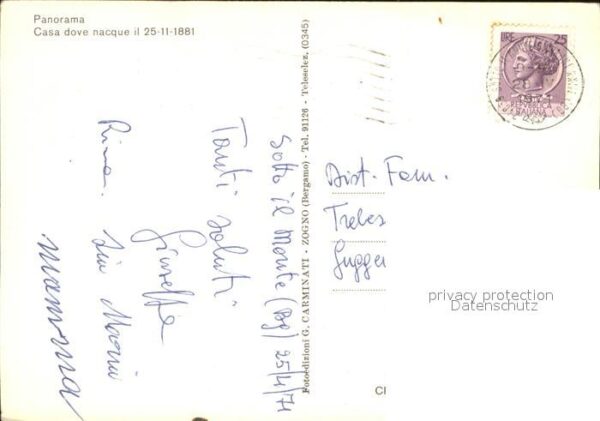 Panorama
Casa dove nacque il 25-11-1881
Sotto il Monte (Bg) 25/4/74
Tanti saluti
Giuseppe
Zia Maria
mamma
Fotoedizioni G. CARMINATI - ZOGNO (Bergamo) - Tel. 91126 - Teleselez. (0345)
LIRE 25
REPVBBLICA
ITALIANA
Dist. Fam.
privacy protection
Datenschutz